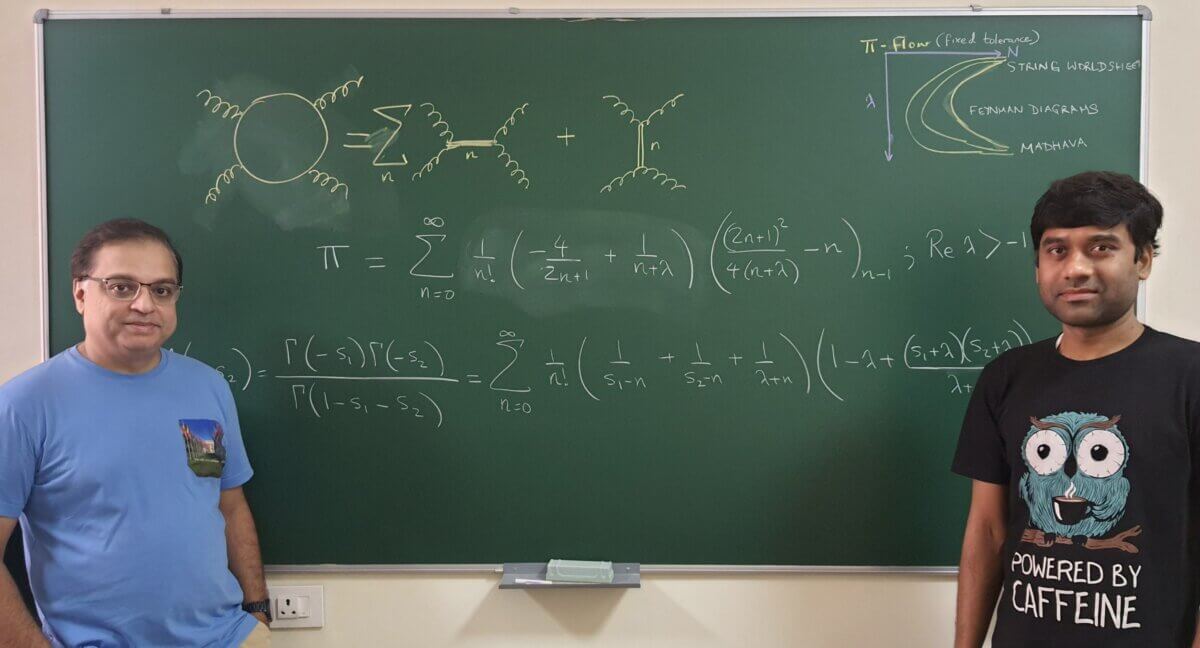 π-flow (fixed tolerance)
N
STRING WORLDSHEE
λ
FEYNMAN DIAGRAMS
MADHAVA
= Σ_n n + n
π = Σ_{n=0}^{∞} 1/n! (-4/(2n+1) + 1/(n+λ)) ((2n+1)²/(4(n+λ)) - n)_{n-1} ; Re λ > -1
s₂) = Γ(-s₁)Γ(-s₂)/Γ(1-s₁-s₂) = Σ_{n=0}^{∞} 1/n! (1/(s₁-n) + 1/(s₂-n) + 1/(λ+n)) (1-λ+ (s₁+λ)(s₂+λ)/λ+
POWERED BY
CAFFEINE